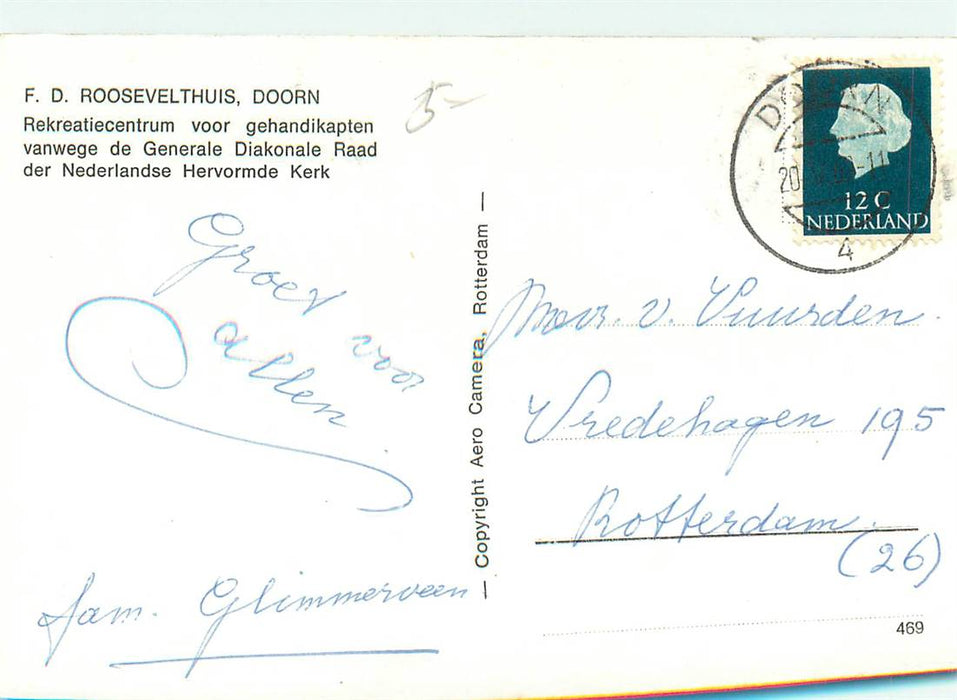 F. D. ROOSEVELTHUIS, DOORN
Rekreatiecentrum voor gehandikapten
vanwege de Generale Diakonale Raad
der Nederlandse Hervormde Kerk
5-
DOORN
4
12 C
NEDERLAND
Groet voor
allen.
fam. Glimmerveen
— Copyright Aero Camera, Rotterdam —
Mevr. v. Vuurden.
Vredehagen 195
Rotterdam.
(26)
469